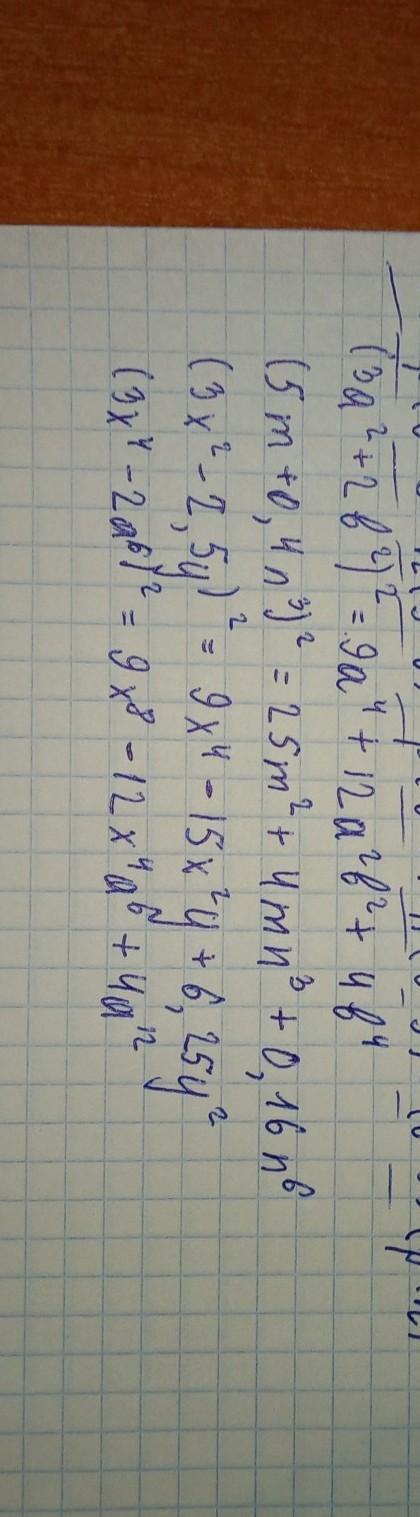 (3a² + 2b²)² = 9a⁴ + 12a²b² + 4b⁴
(5m + 0,4n³)² = 25m² + 4mn³ + 0,16n⁶
(3x² - 2,5y)² = 9x⁴ - 15x²y + 6,25y²
(3x⁴ - 2a⁶)² = 9x⁸ - 12x⁴a⁶ + 4a¹²